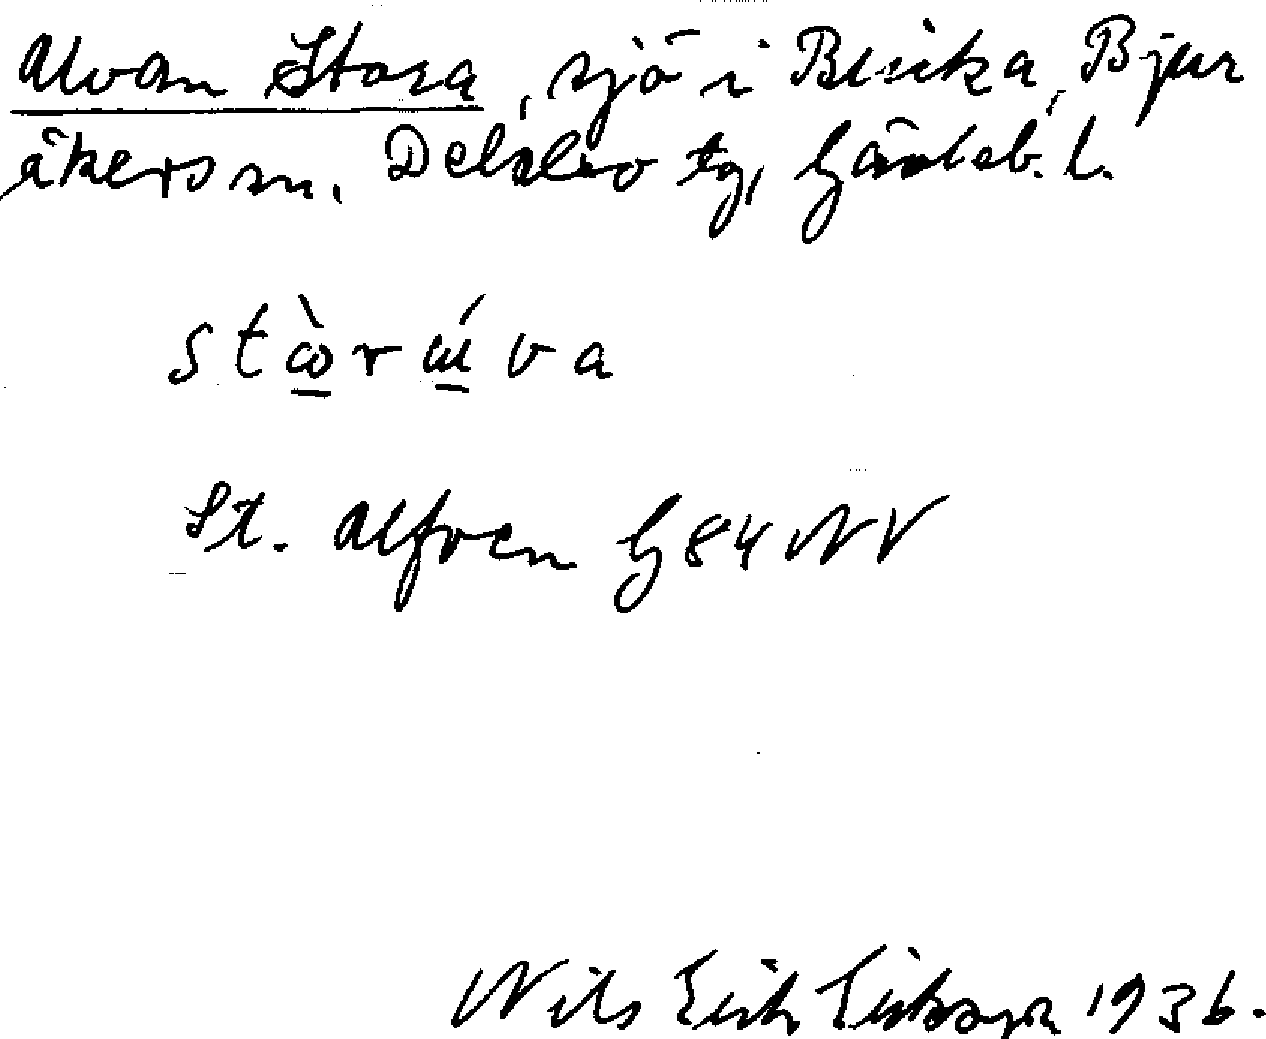 Alvan Stora, sjö i Brsika, Bjur
åkers sn. Delsbo tg, Gävleb. l.
stòrúva
St. Alfven G84NV
Nils Erik Eriksson 1936.